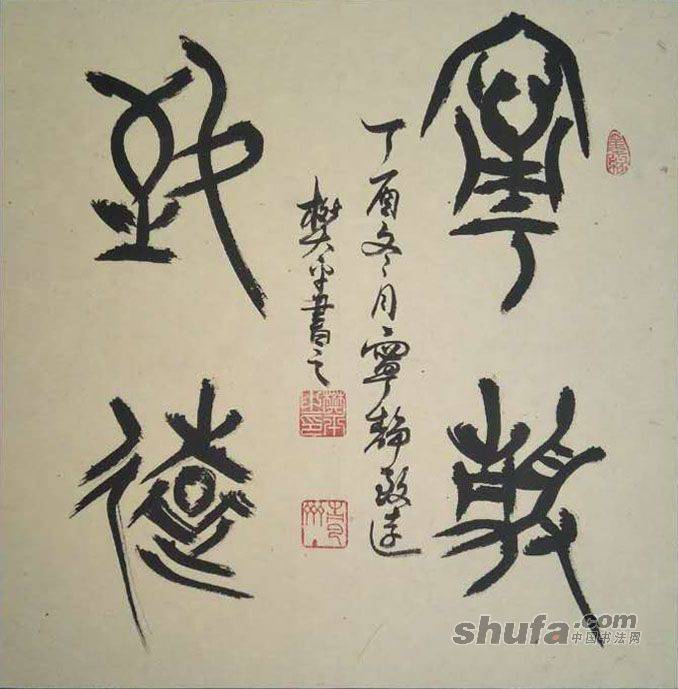 寧靜
致遠
丁酉冬月寧靜致遠
樊平書之
shufa.com
中国书法网